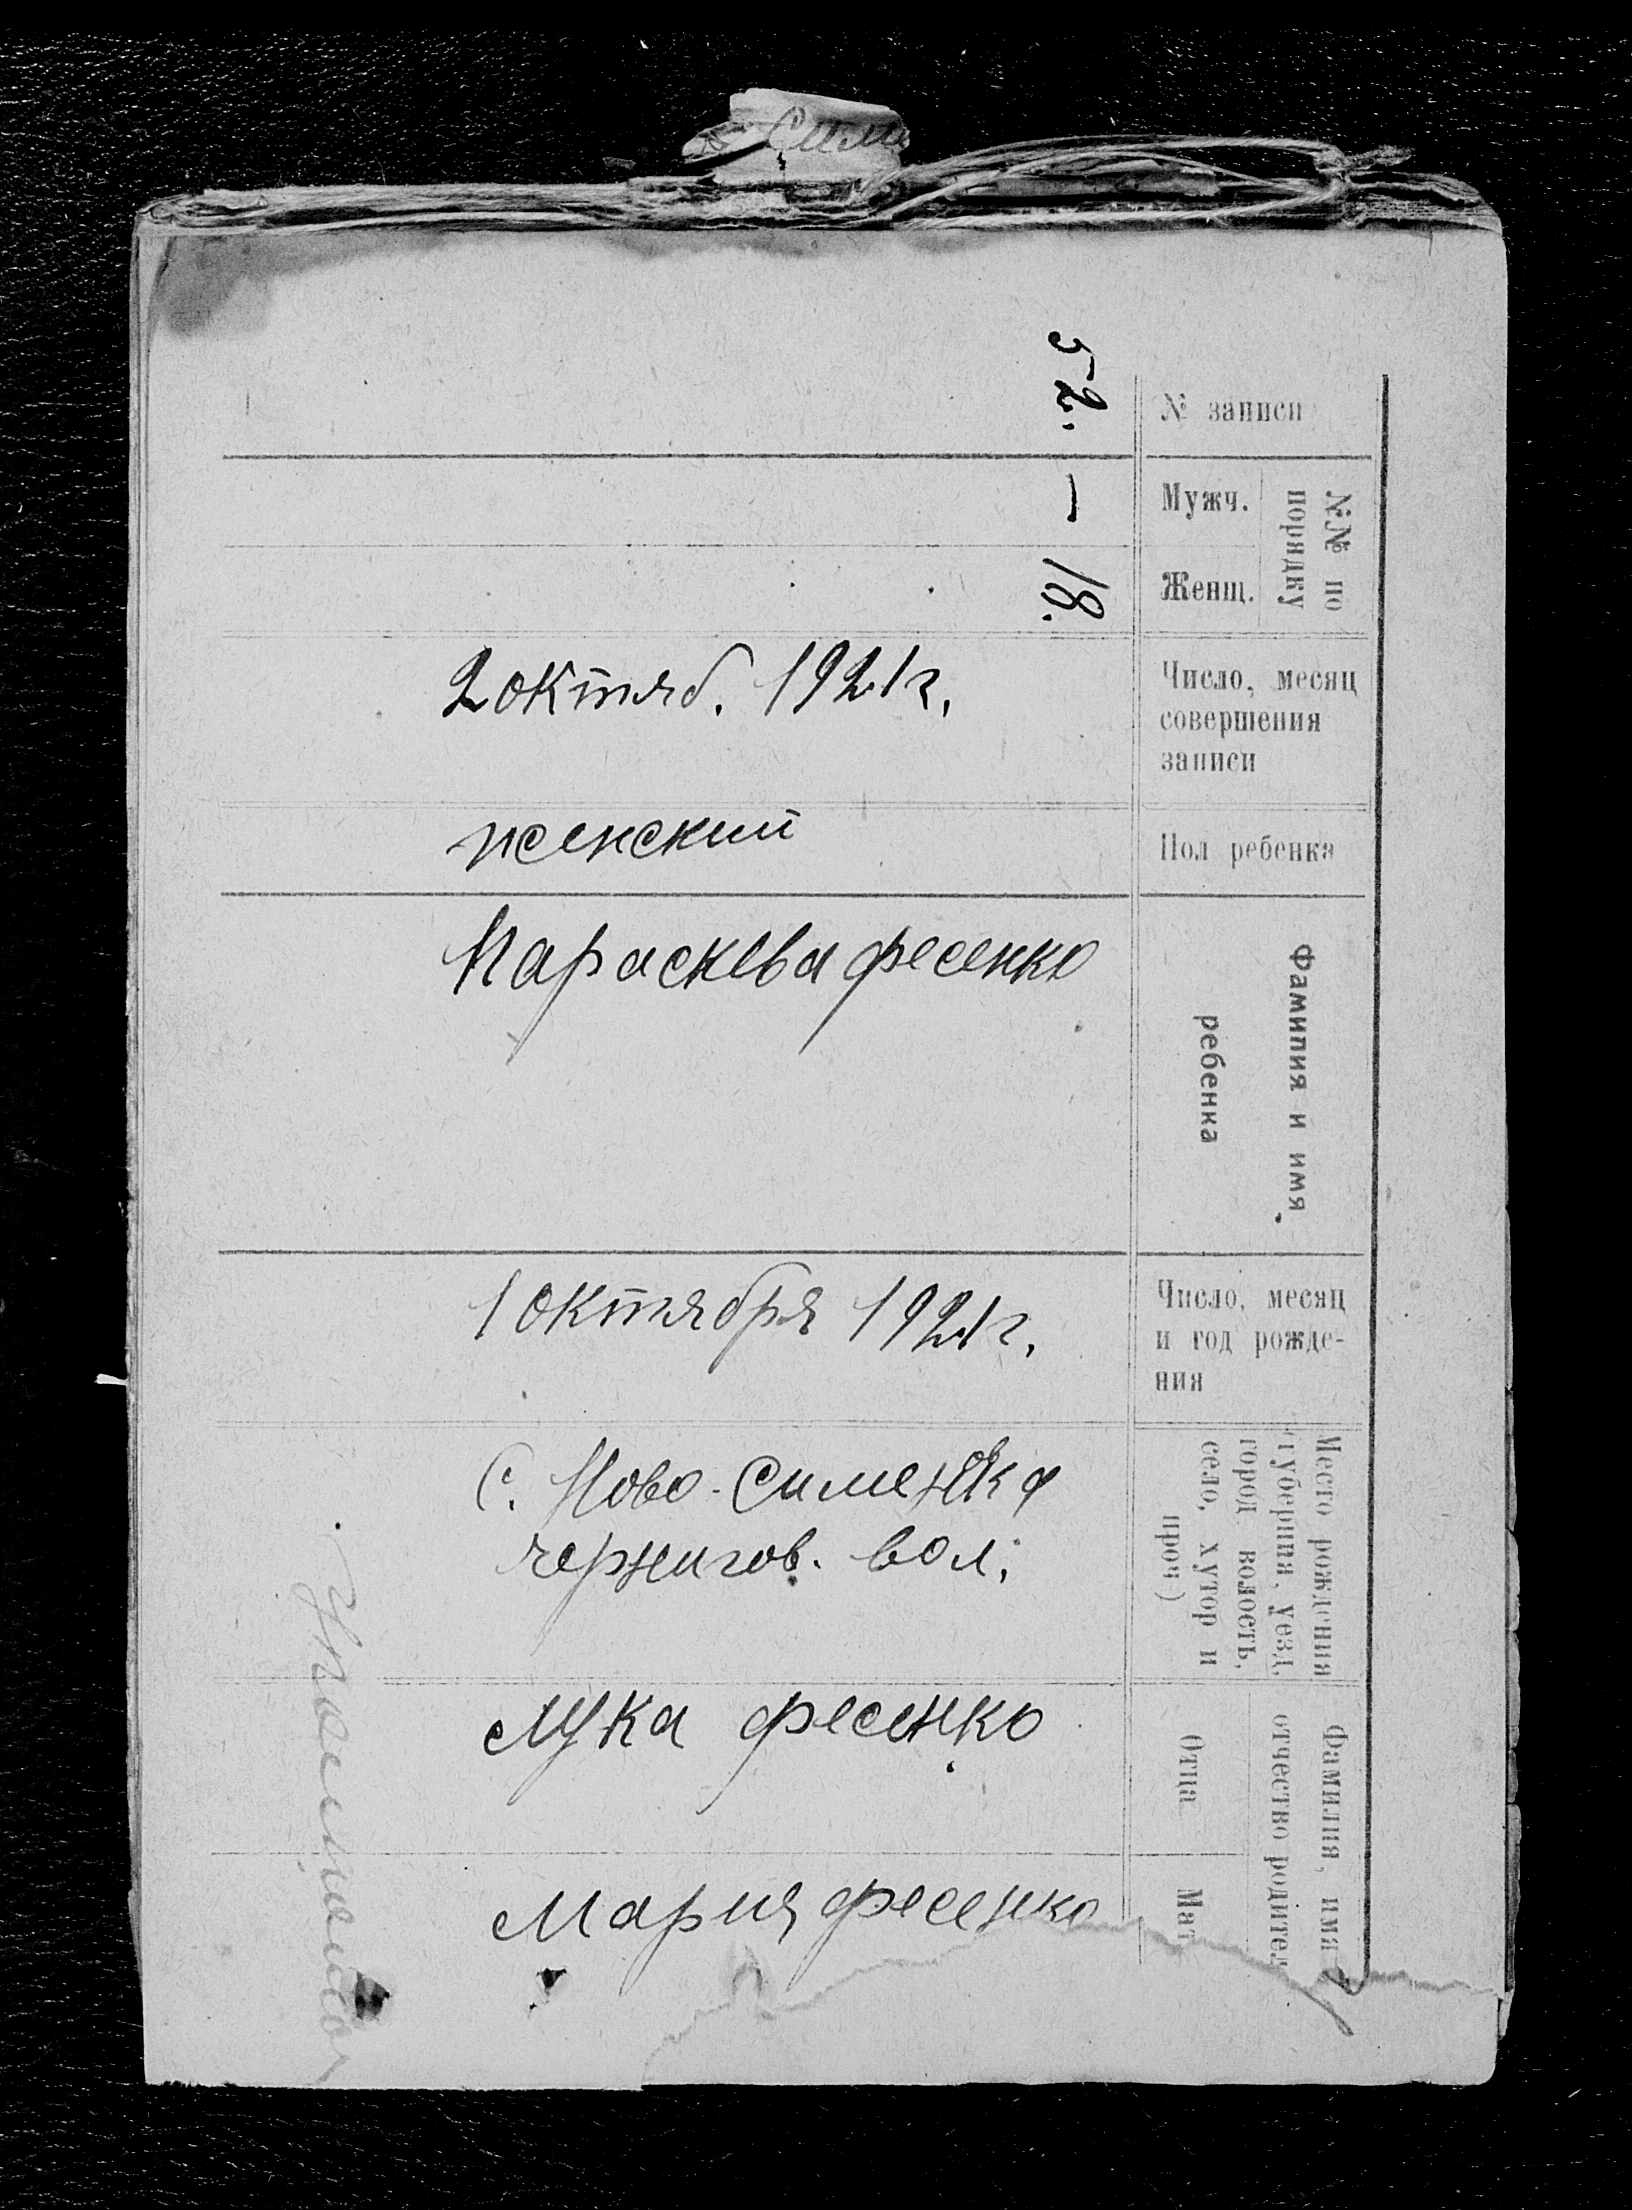 Симе
№ записи
52.
№№ по
порядку
Мужч.
—
Женщ.
18.
Число, месяц
совершения
записи
2 октяб. 1921 г.
Пол ребенка
женский
Фамилия и имя
ребенка
Параскева Фесенко
Число, месяц
и год рожде-
ния
1 октября 1921 г.
Место рождения
(губерния, уезд,
город волость,
село, хутор и
проч)
С. Ново-Сименка
чернигов. вол.
Фамилия, имя
отчество родител
Отца
Лука Фесенко
Мат
Мария Фесенко